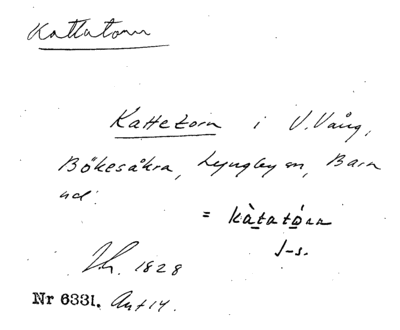 Kattatorn
Kattetorn i V. Vång,
Bökesåkra, Lyngbyen, Barn
ud.
= kàtatórn
J-s.
1828
Nr 6331. Ant 14.